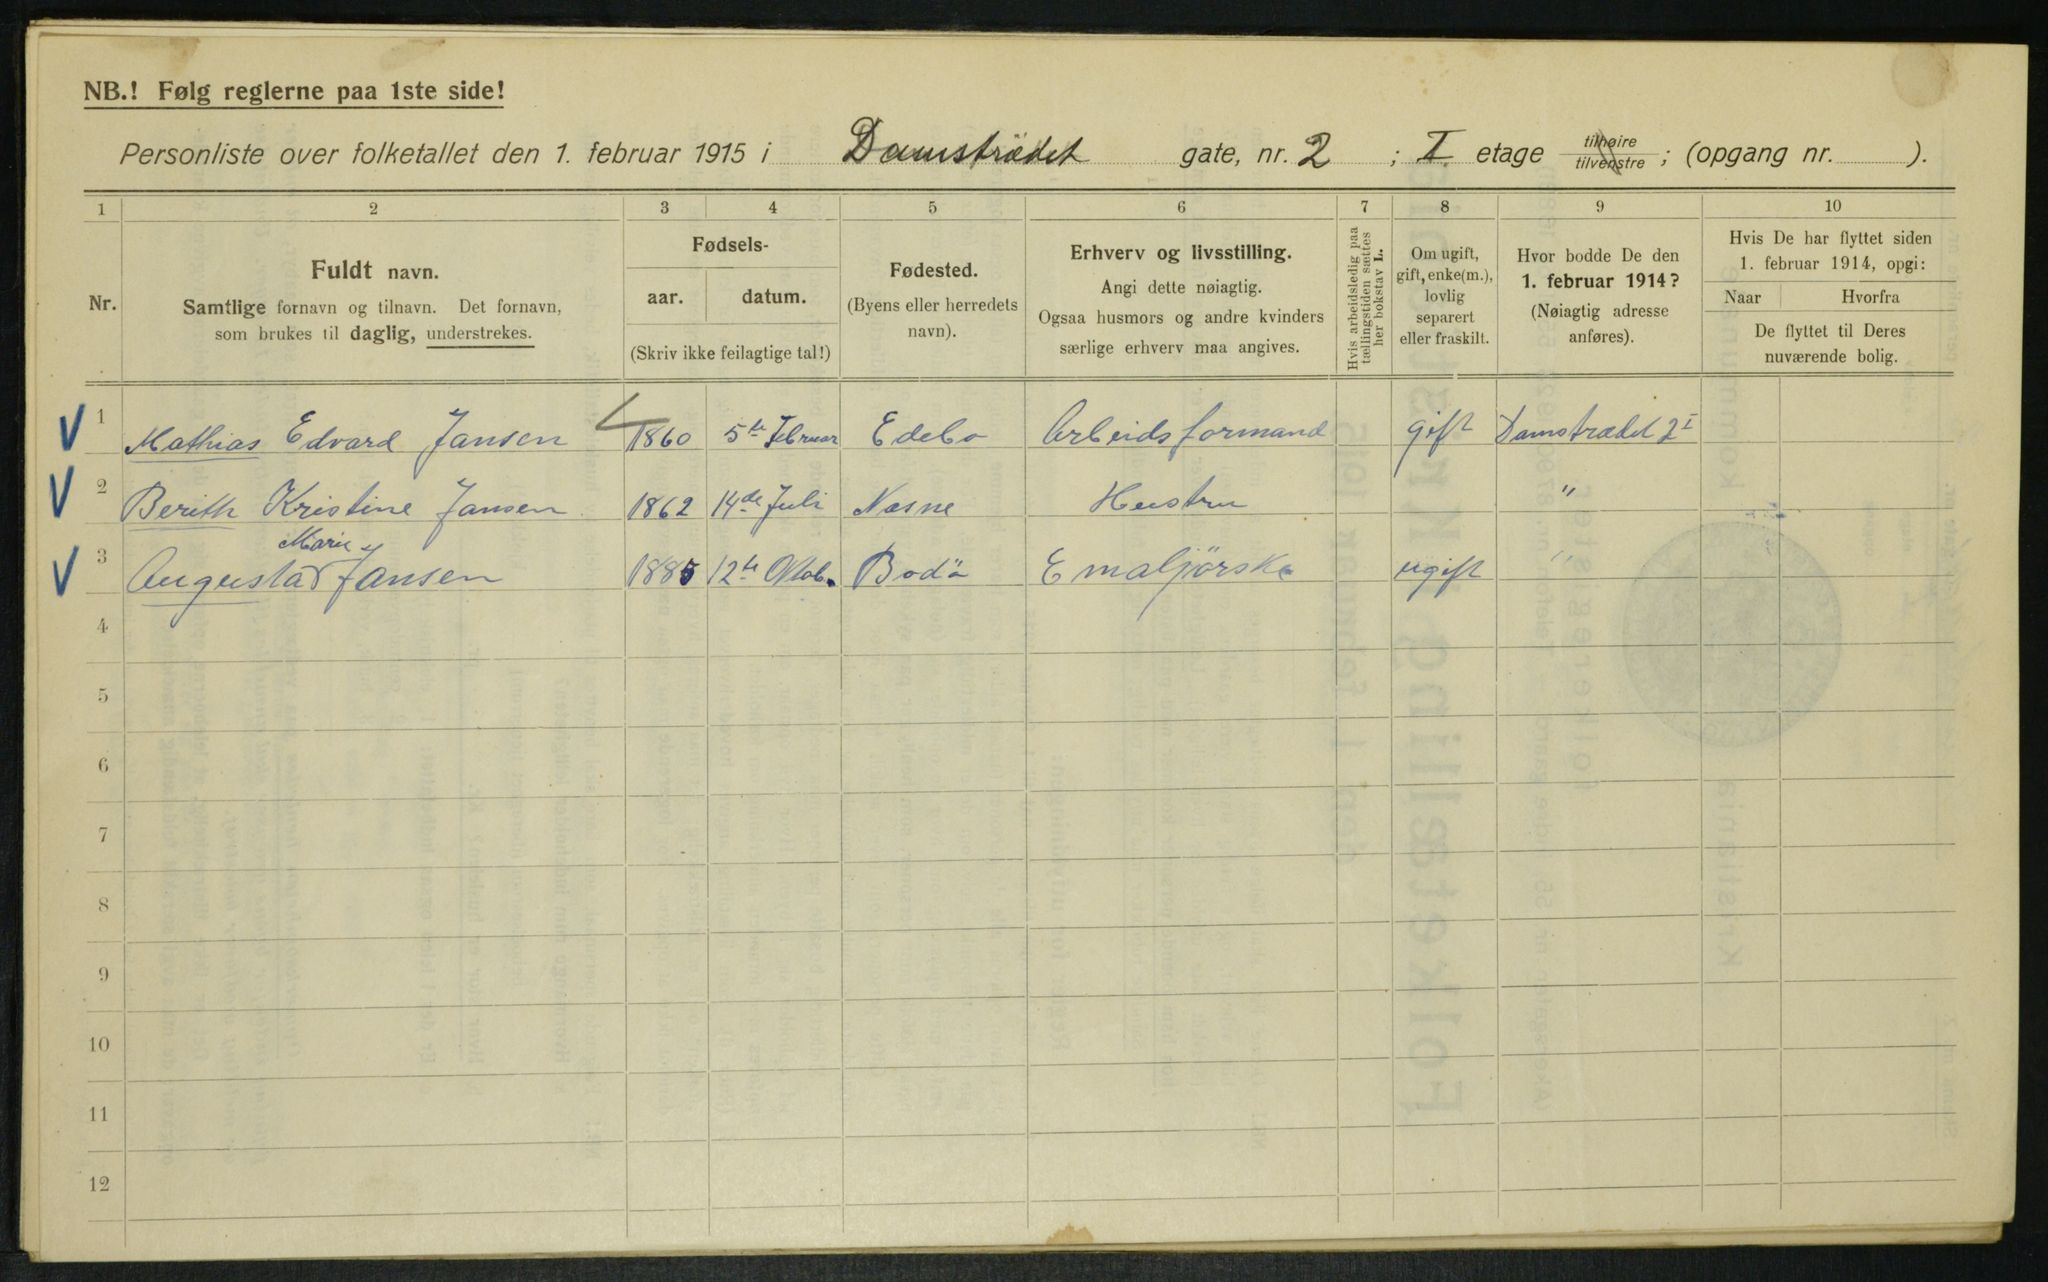 NB.! Følg reglerne paa 1ste side!
Personliste over folketallet den 1. februar 1915 i Damstrædet gate, nr. 2 ; I etage tilhøire tilvenstre ; (opgang nr. ).
1 2 3 4 5 6 7 8 9 10
Nr.
Fuldt navn.
Samtlige fornavn og tilnavn. Det fornavn,
som brukes til daglig, understrekes.
Fødsels-
aar. datum.
(Skriv ikke feilagtige tal!)
Fødested.
(Byens eller herredets
navn).
Erhverv og livsstilling.
Angi dette nøiagtig.
Ogsaa husmors og andre kvinders
særlige erhverv maa angives.
Hvis arbeidsledig paa
tællingstiden sættes
her bokstav L.
Om ugift,
gift, enke(m.),
lovlig
separert
eller fraskilt.
Hvor bodde De den
1. februar 1914?
(Nøiagtig adresse
anføres).
Hvis De har flyttet siden
1. februar 1914, opgi:
Naar Hvorfra
De flyttet til Deres
nuværende bolig.
1 Mathias Edvard Jansen 1860 5te Februar Edebo Arbeidsformand gift Damstrædet 2 I
2 Berith Kristine Jansen 1862 14de Juli Næsne Hustru "
3 Augusta Marie Jansen 1885 12te Oktob. Bodö Emaljørske ugift "
4
5
6
7
8
9
10
11
12